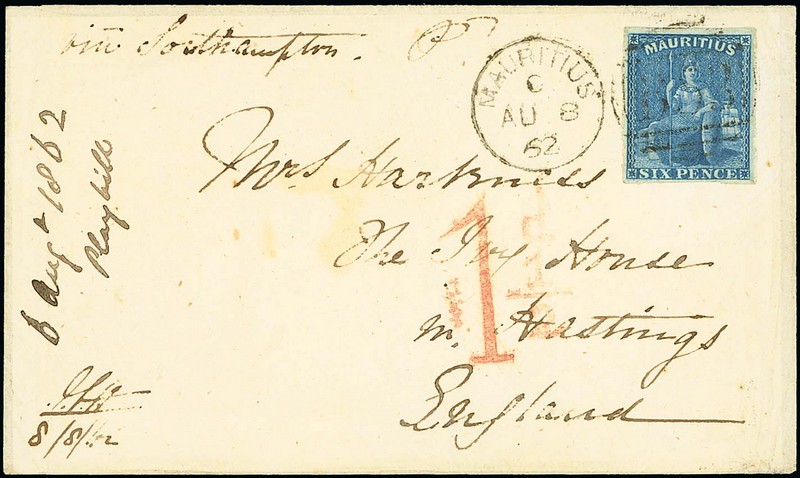 via Southampton. P
MAURITIUS
C
AU 8
62
MAURITIUS
SIX PENCE
Mrs Harkness
The Ivy House
nr. Hastings
England
1
6 Augt 1862
Playbill
8/8/62